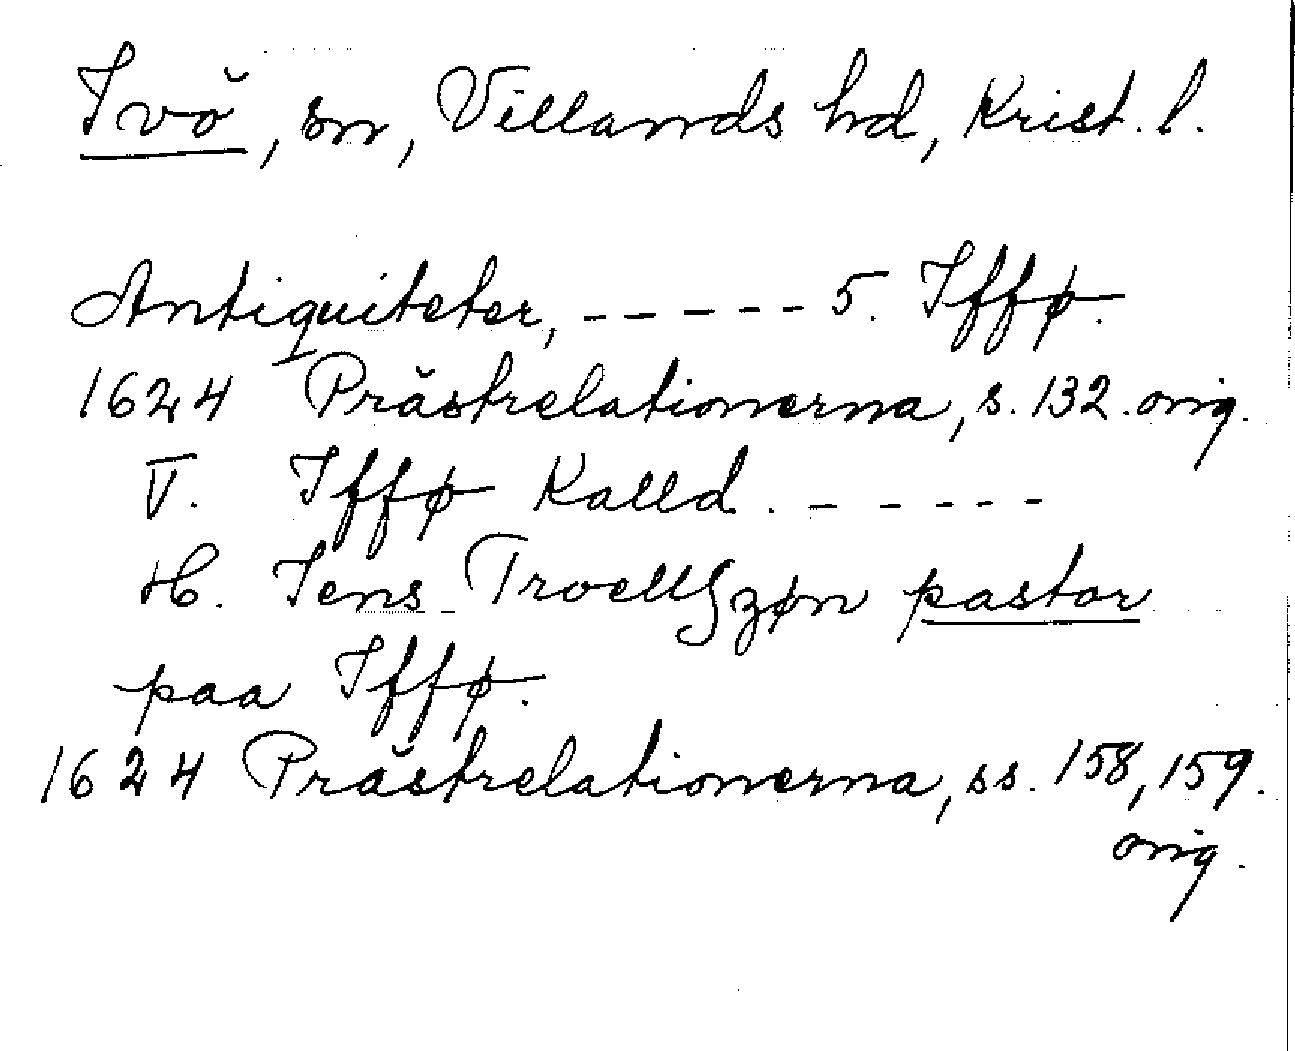 Ivö, sn, Villands hd, Krist. l.
Antiquiteter, ----- 5. Iffø.
1624 Prästrelationerna, s. 132. orig.
V. Iffø Kalld. ------
H. Jens Troellszøn pastor
paa Iffø.
1624 Prästrelationerna, ss. 158, 159.
orig.